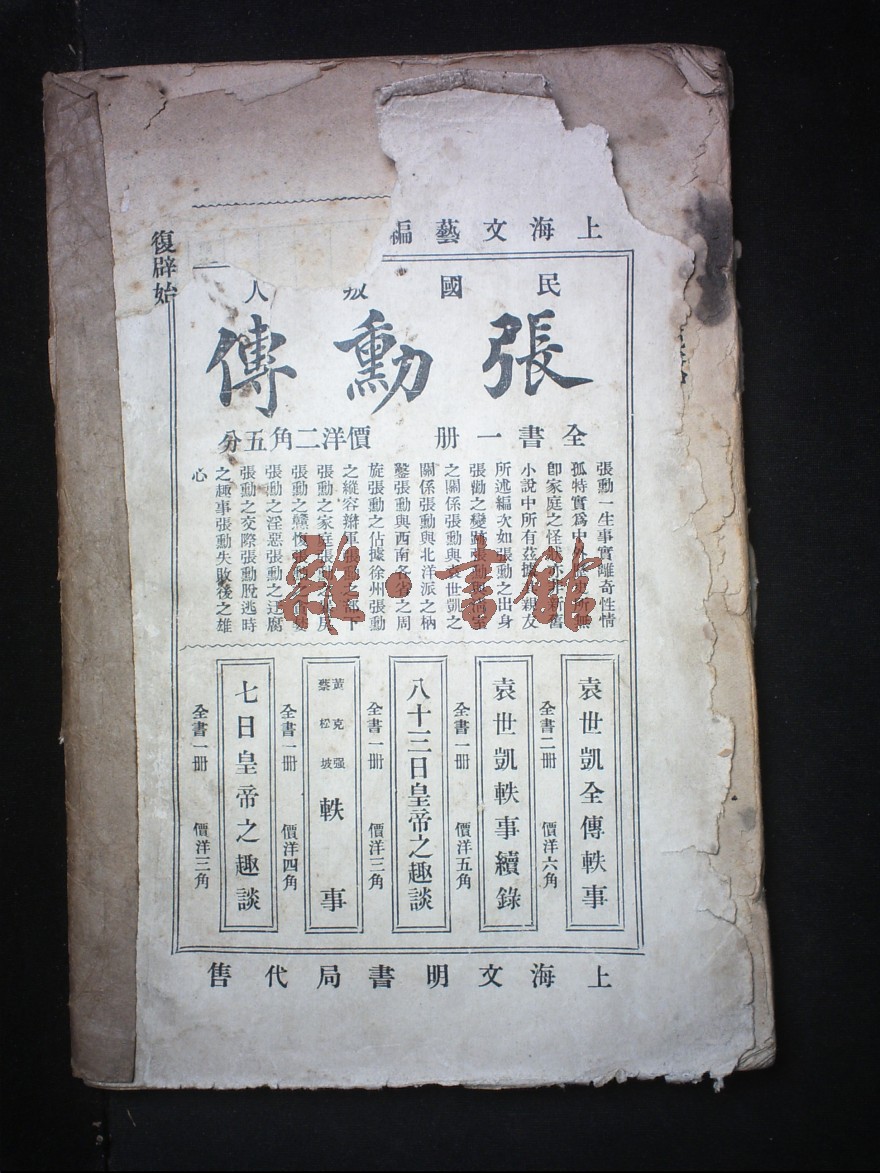 上海文藝編
民國叛人
張勳傳
全書一册 價洋二角五分
張勳一生事實離奇性情
孤特實爲中外
卽家庭之怪
小說中所有茲據親友
所述編次如張勳之出身
張勳之變
之關係張勳與袁世凱之
關係張勳與北洋派之枘
鑿張勳與西南各省之周
旋張勳之佔據徐州張勳
之縱容辮軍張勳之部下
張勳之家庭張勳之
張勳之驕
張勳之淫惡張勳之迂腐
張勳之交際張勳脫逃時
之趣事張勳失敗後之雄
心
袁世凱全傳軼事
全書二册 價洋六角
袁世凱軼事續錄
全書一册 價洋五角
八十三日皇帝之趣談
全書一册 價洋三角
黃克强
蔡松坡
軼事
全書一册 價洋四角
七日皇帝之趣談
全書一册 價洋三角
上海文明書局代售
復辟始
雜·書館